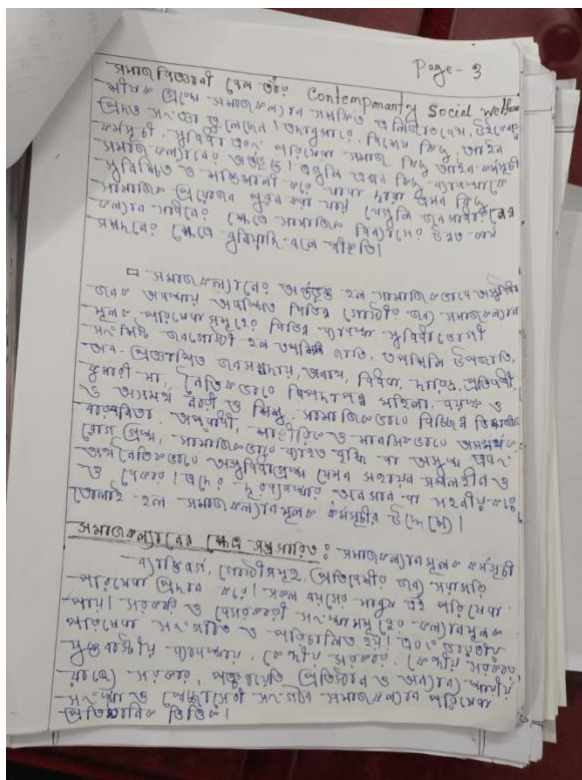 Page - 3
সমাজবিজ্ঞানী তাঁর Contemporary Social Welfare
শীর্ষক গ্রন্থে সমাজকল্যাণ সম্পর্কিত
প্রদত্ত সংজ্ঞা তুলেছেন। তদনুসারে, বিশেষ কিছু আইন
কর্মসূচী, সুবিধা এবং পরিষেবা সমাজ কিছু আইন কর্মসূচী
সমাজ কল্যাণের অর্ন্তভুক্ত। এগুলি এমন কিছু ব্যবস্থাকে
সুনিশ্চিত ও শক্তিশালী করে যাহা দ্বারা এমন কিছু
সামাজিক প্রয়োজন পূরন করা যায় যেগুলি জনসাধারণের
কল্যান সাধনের ক্ষেত্রে সামাজিক বিন্যাসের উন্নত কার্য
সম্পাদনের ক্ষেত্রে বুনিয়াদি বলে স্বীকৃত।
□ সমাজকল্যানের অর্ন্তভুক্ত হল সামাজিকভাবে অসুবিধা
জনক অবস্থায় অবস্থিত বিভিন্ন গোষ্ঠীর জন্য সমাজকল্যান
মূলক পরিষেবা সমূহের বিভিন্ন ব্যবস্থা সুবিধাভোগী
সংশ্লিষ্ট জনগোষ্ঠী হল তপশিলি জাতি, তপশিলি উপজাতি,
জনসম্প্রদায়, অনাথ, বিধবা, দরিদ্র, প্রতিবন্ধী,
কুমারী মা, নৈতিকভাবে বিপদাপন্ন মহিলা, বয়স্ক ও
ও অসমর্থ নারী ও শিশু, সামাজিকভাবে বিচ্ছিন্ন
অপরাধী, শারীরিক ও মানসিকভাবে অসমর্থ
রোগগ্রস্থ, সামাজিকভাবে ব্যাহত বৃদ্ধি বা অসুস্থ এবং
অর্থনৈতিকভাবে অসুবিধাগ্রস্থ যেমন সহায় সম্বলহীন ও
ও বেকার। এদের দূরাবস্থার অবসান বা সহনীয় করে
তোলাই হল সমাজকল্যানমূলক কর্মসূচীর উদ্দেশ্যে।
সমাজকল্যানের ক্ষেত্র সম্প্রসারিত: সমাজকল্যানমূলক কর্মসূচী
ব্যাক্তিবর্গ, গোষ্ঠীসমূহ, প্রতিবেশীর জন্য সরাসরি
পরিষেবা প্রদান করে। সকল বয়সের মানুষ এই পরিষেবা
পায়। সরকারি ও বেসরকারী সংস্থাসমূহের কল্যানমূলক
পরিষেবা সংগঠিত ও পরিচালিত হয়। এবং ভারতীয়
যুক্তরাষ্ট্রীয় ব্যবস্থায়, কেন্দ্রীয় সরকার, কেন্দ্রীয় সরকার,
রাজ্য সরকার, পঞ্চায়েতি প্রতিষ্ঠান ও অন্যান্য স্থানীয়
সংস্থা ও স্বেচ্ছাসেবী সংগঠন সমাজকল্যান পরিষেবা
প্রতিষ্ঠানিক ভিত্তি।